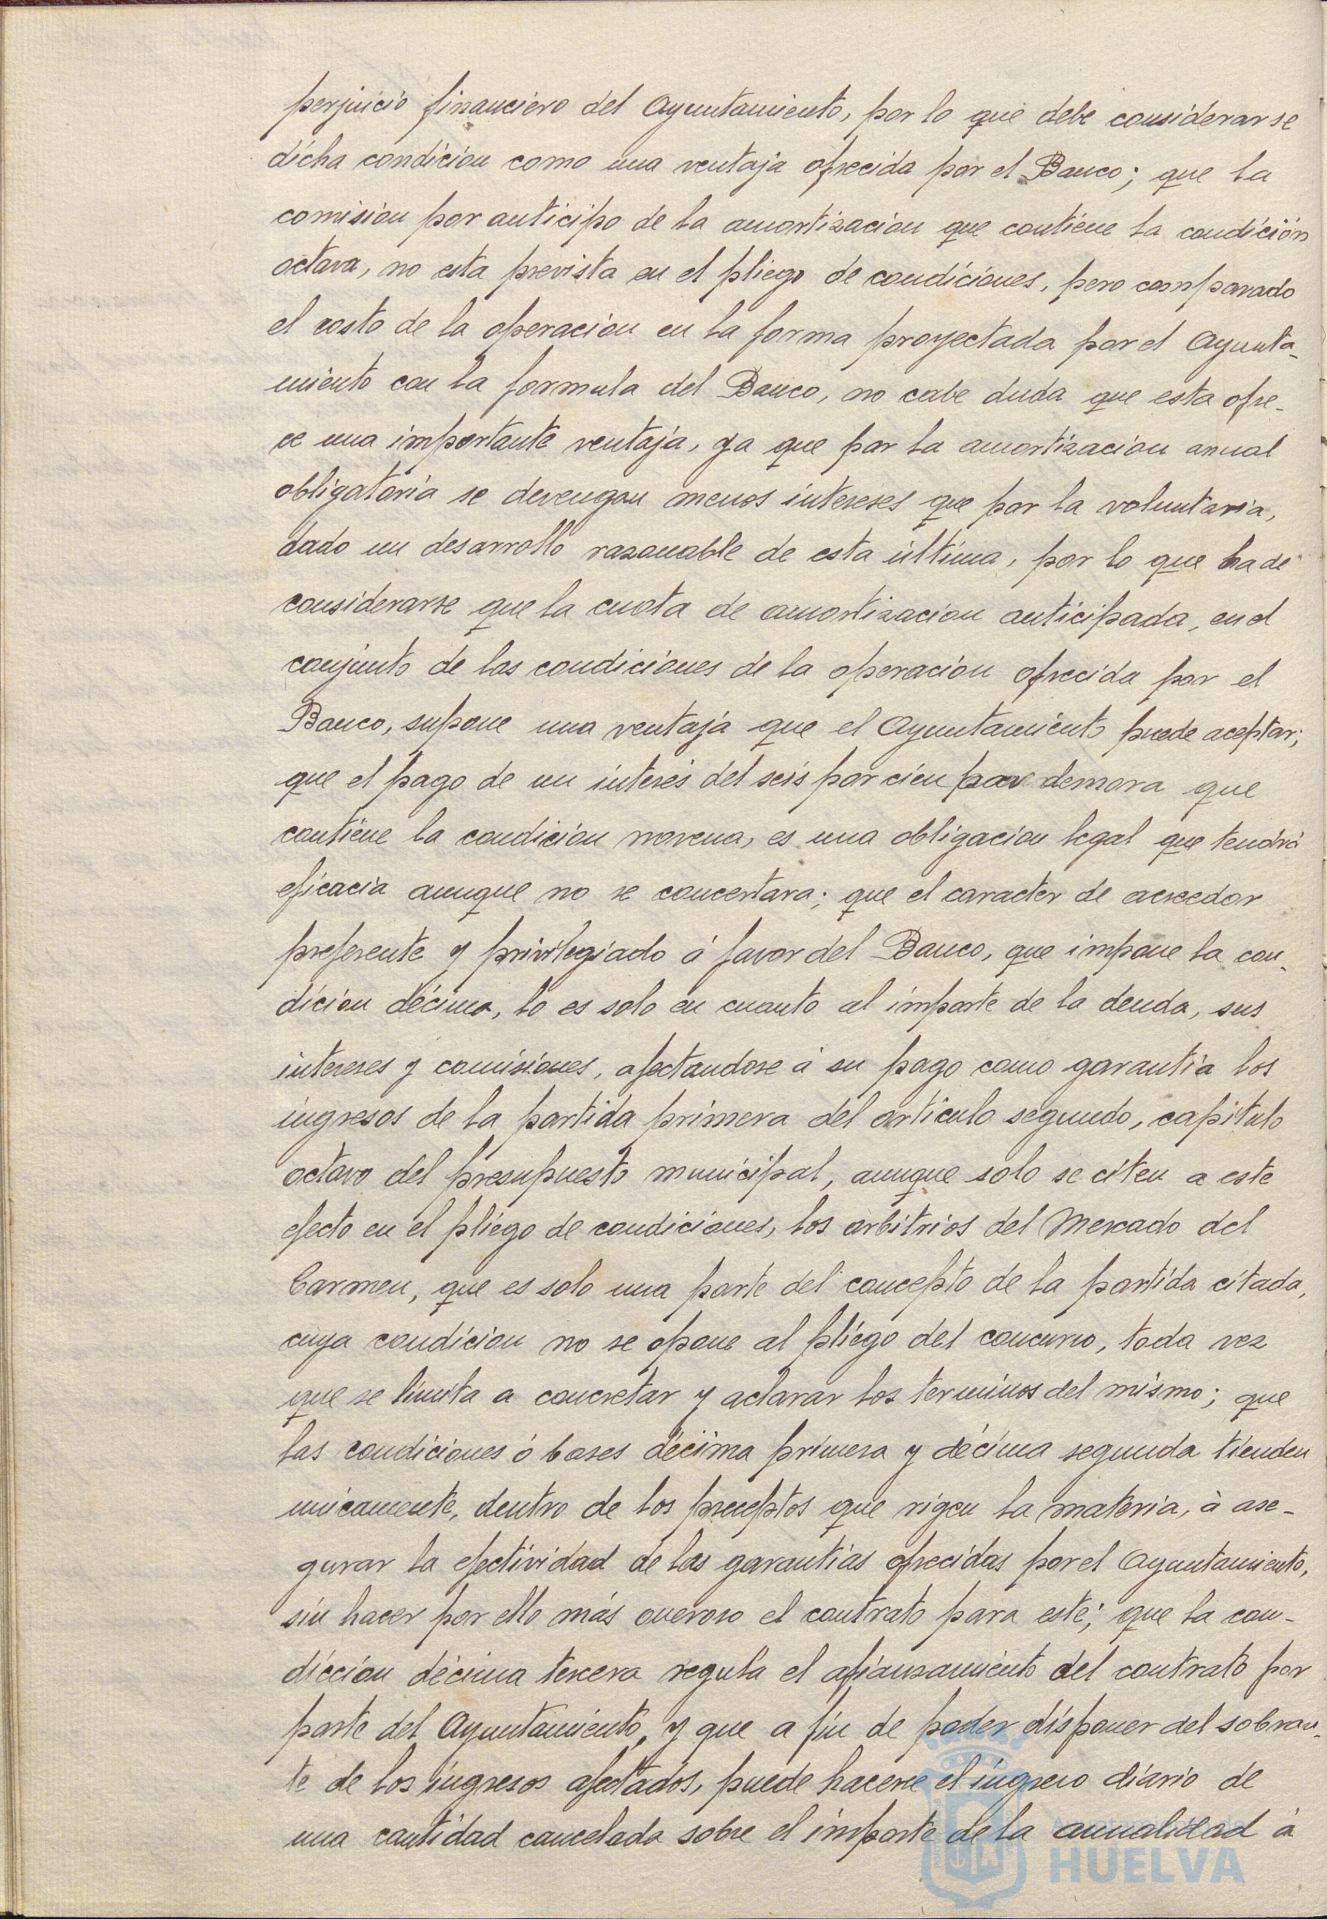 perjuicio financiero del Ayuntamiento, por lo que debe considerarse
dicha condicion como una ventaja ofrecida por el Banco; que la
comision por anticipo de la amortizacion que contiene la condición
octava, no esta prevista en el pliego de condiciones, pero comparado
el costo de la operacion en la forma proyectada por el Ayunta-
miento con la formula del Banco, no cabe duda que esta ofre-
ce una importante ventaja, ya que por la amortizacion anual
obligatoria se devengan menos intereses que por la voluntaria,
dado un desarrollo razonable de esta última, por lo que ha de
considerarse que la cuota de amortizacion anticipada, en el
conjunto de las condiciones de la operacion ofrecida por el
Banco, supone una ventaja que el Ayuntamiento puede aceptar;
que el pago de un interés del seis por cien por demora que
contiene la condicion novena, es una obligacion legal que tendrá
eficacia aunque no se concertara; que el caracter de acreedor
preferente y privilegiado á favor del Banco, que impone la con-
dicion décima, lo es solo en cuanto al importe de la deuda, sus
intereses y comisiones, afectandose á su pago como garantía los
ingresos de la partida primera del artículo segundo, capitulo
octavo del presupuesto municipal, aunque solo se citen a este
efecto en el pliego de condiciones, los arbitrios del Mercado del
Carmen, que es solo una parte del concepto de la partida citada,
cuya condicion no se opone al pliego del concurso, toda vez
que se limita a concretar y aclarar los terminos del mismo; que
las condiciones ó bases décima primera y décima segunda tienden
unicamente, dentro de los preceptos que rigen la materia, á ase-
gurar la efectividad de las garantías ofrecidas por el Ayuntamiento,
sin hacer por ello más oneroso el contrato para este; que la con-
diccion décima tercera regula el afianzamiento del contrato por
parte del Ayuntamiento, y que a fin de poder disponer del sobran-
te de los ingresos afectados, puede hacerse el ingreso diario de
una cantidad cancelada sobre el importe de la anualidad á
HUELVA